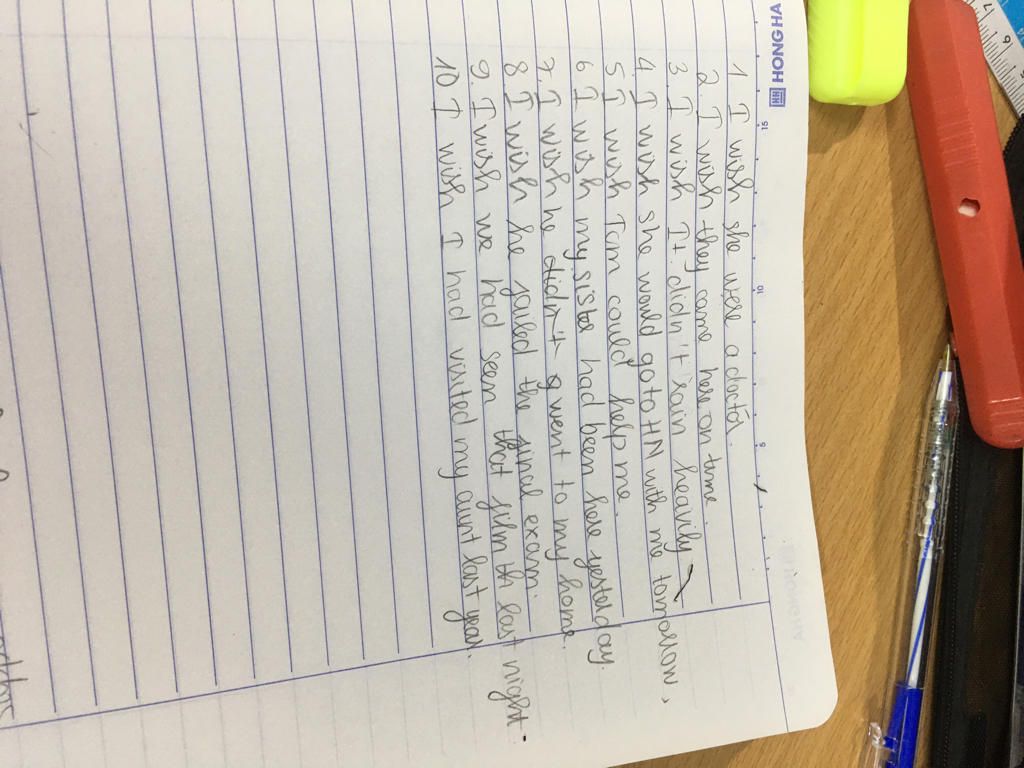 HONG HA
1 I wish she were a doctor.
2 I wish they came here on time.
3 I wish It didn't rain heavily
4 I wish she would go to HN with me tomorrow.
5 I wish Tom could help me.
6 I wish my sister had been here yesterday
7. I wish he didn't went to my home.
8 I wish he failed the final exam.
9. I wish we had seen that film last night.
10 I wish I had visited my aunt last year.
15
10
5